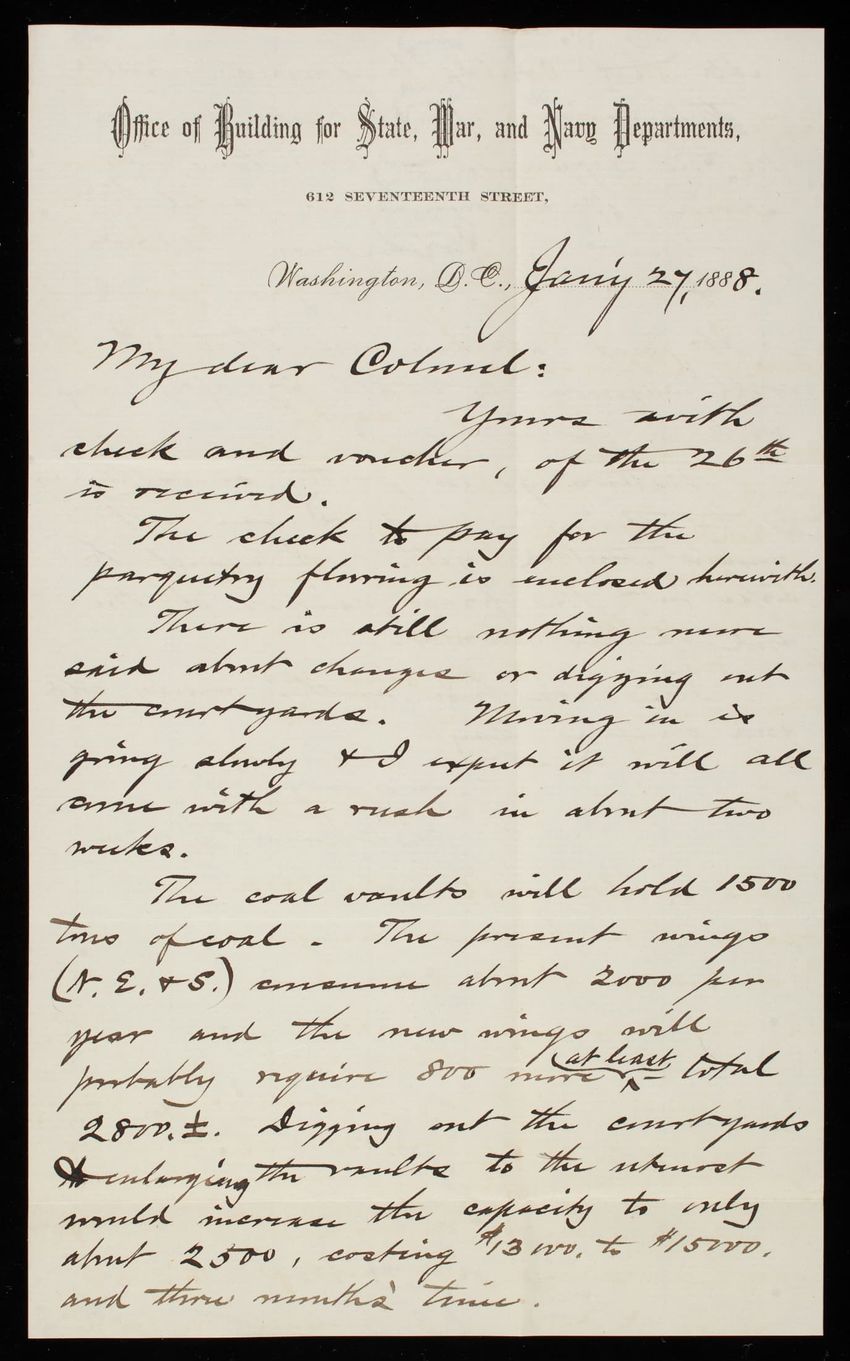 Office of Building for State, War, and Navy Departments,
612 SEVENTEENTH STREET,
Washington, D.C., Jan'y 27, 1888.
My dear Colonel:
Yours with
check and voucher, of the 26th
is received.
The check to pay for the
parquetry flooring is enclosed herewith.
There is still nothing more
said about changes or digging out
the courtyards. Moving in is
going slowly & I expect it will all
come with a rush in about two
weeks.
The coal vaults will hold 1500
tons of coal. The present wings
(N. E. & S.) consume about 2000 per
year and the new wings will
probably require 800 more (at least) – total
2800. ±. Digging out the courtyards
& enlarging the vaults to the utmost
would increase the capacity to only
about 2500, costing $13000. to $15000.
and three months' time.